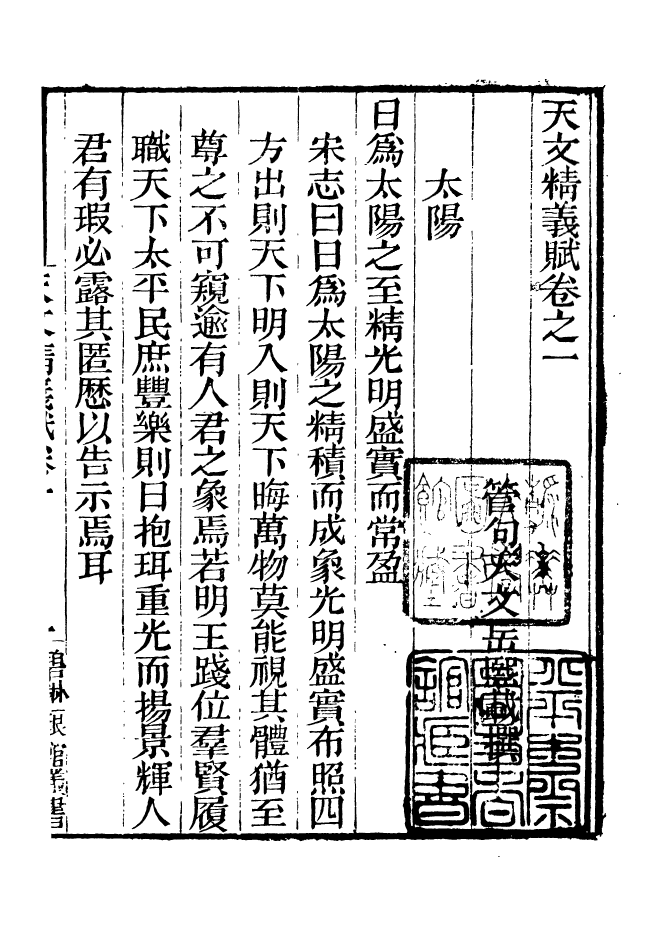 天文精義賦卷之一
管句天文岳熙載撰
太陽
日爲太陽之至精光明盛實而常盈
宋志曰日爲太陽之精積而成象光明盛實布照四
方出則天下明入則天下晦萬物莫能視其體猶至
尊之不可窺逾有人君之象焉若明王踐位羣賢履
職天下太平民庶豐樂則日抱珥重光而揚景輝人
君有瑕必露其匿歷以告示焉耳
天文精義賦卷一
一